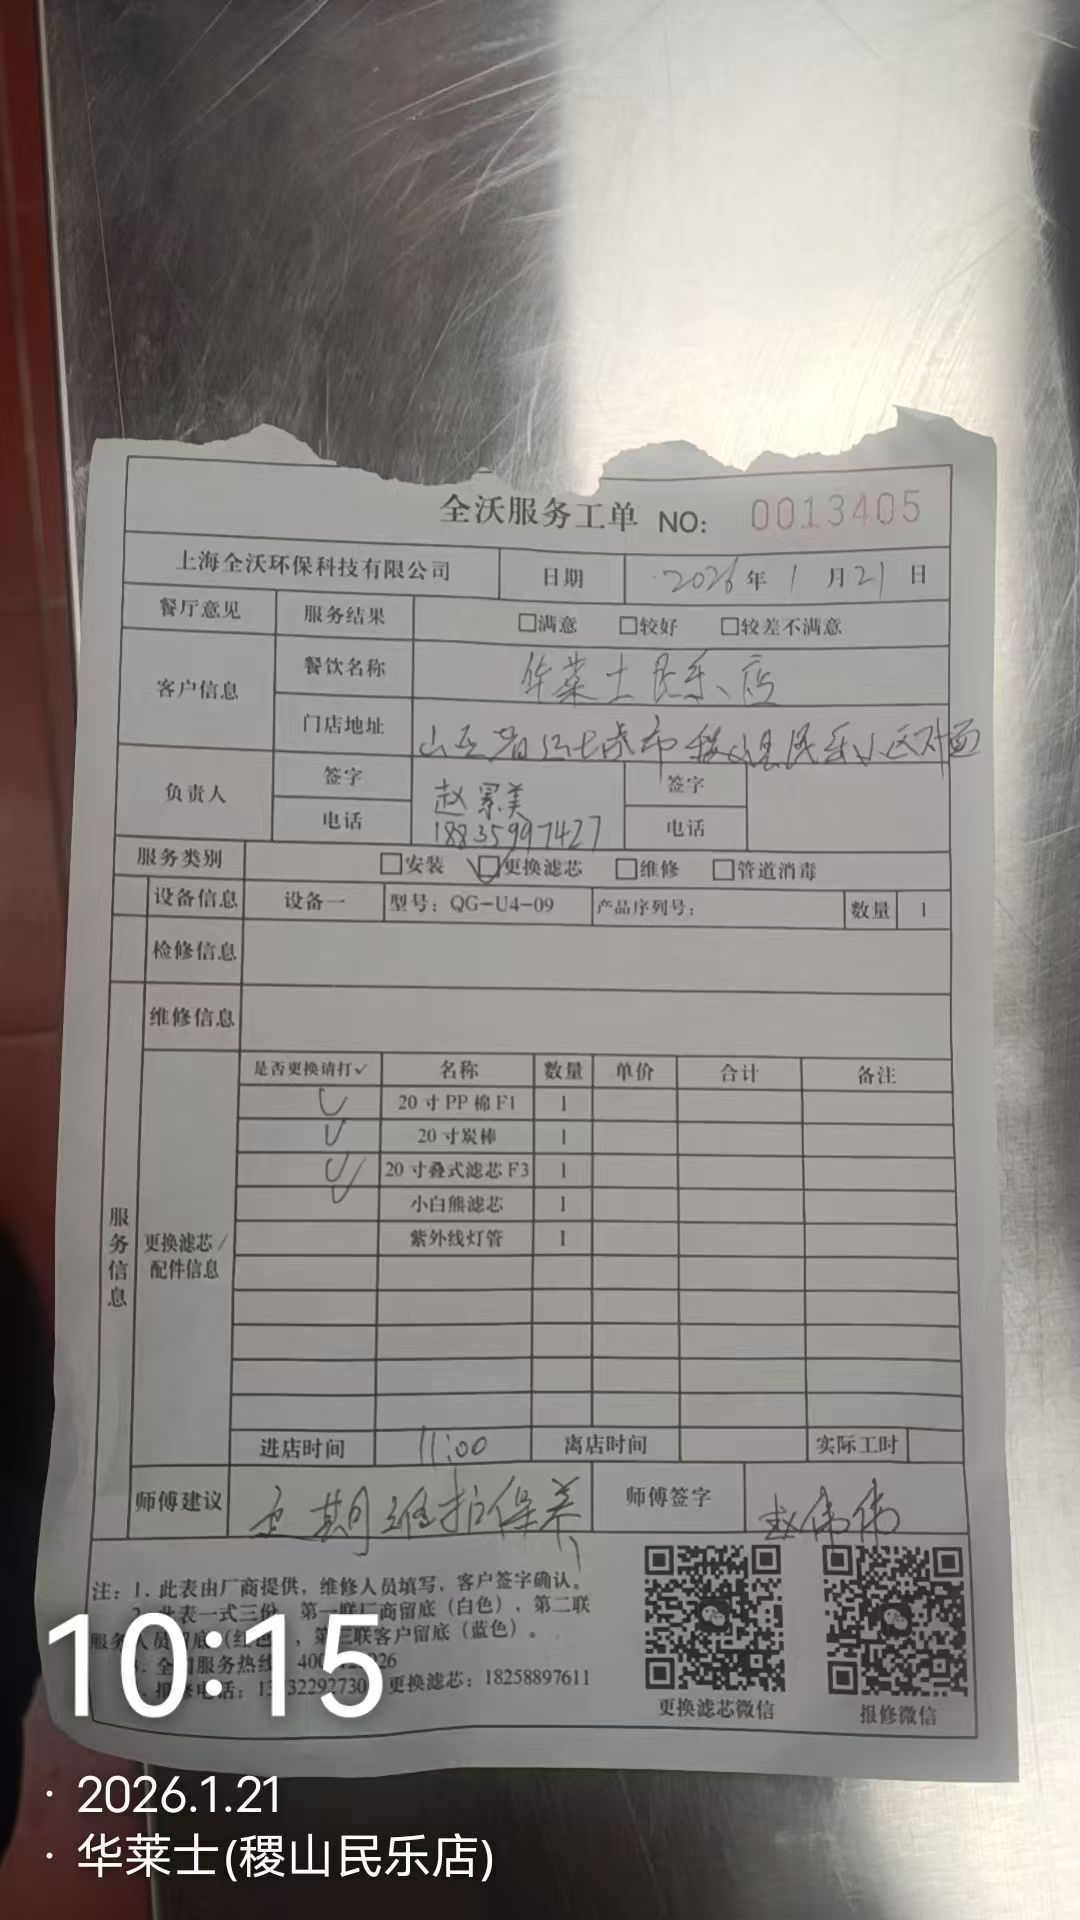 全沃服务工单 NO: 0013405
上海全沃环保科技有限公司 日期 2026年1月21日
餐厅意见 服务结果 □满意 □较好 □较差不满意
客户信息 餐饮名称 华莱士民乐店
门店地址 山西省运城市稷山县民乐小区对面
负责人 签字 赵 美 签字
电话 18835997427 电话
服务类别 □安装 ☑更换滤芯 □维修 □管道消毒
设备信息 设备一 型号：QG-U4-09 产品序列号： 数量 1
检修信息
维修信息
服务信息
更换滤芯/配件信息
是否更换请打✓ 名称 数量 单价 合计 备注
✓ 20寸PP棉F1 1
✓ 20寸炭棒 1
✓ 20寸叠式滤芯F3 1
✓ 小白熊滤芯 1
紫外线灯管 1
进店时间 11:00 离店时间 实际工时
师傅建议 定期维护保养 师傅签字 赵伟伟
注：1、此表由厂商提供，维修人员填写，客户签字确认。
2、此表一式三份，第一联厂商留底（白色）、第二联
服务人员留底（红色）、第三联客户留底（蓝色）。
3、全国服务热线
报修电话： 更换滤芯：18258897611
更换滤芯微信 报修微信
10:15
· 2026.1.21
· 华莱士(稷山民乐店)